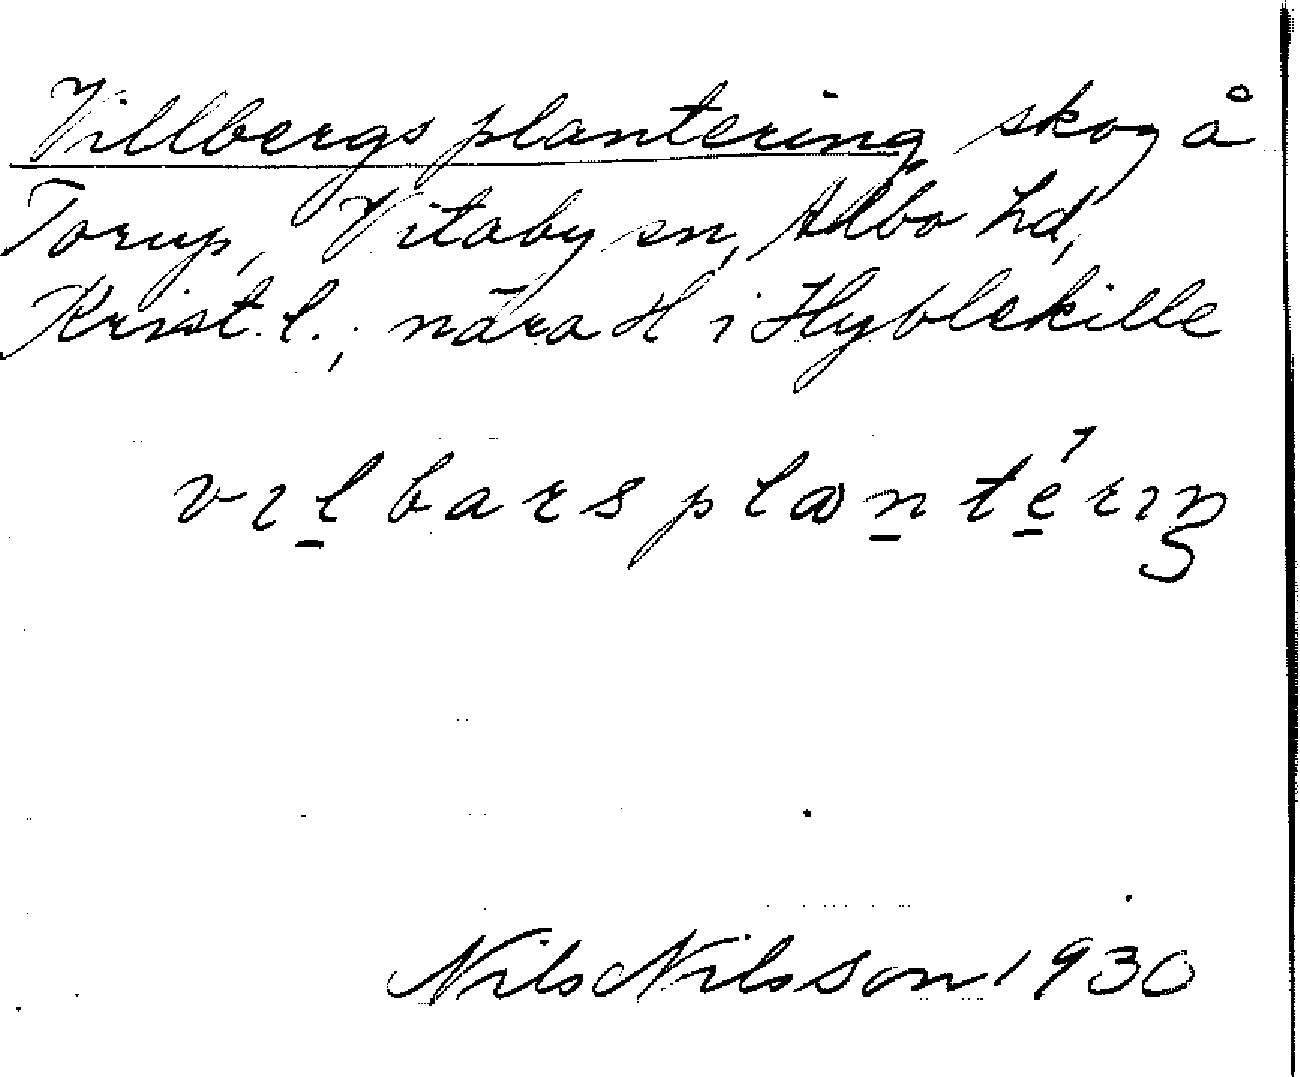 Villbergs plantering skog å
Torup, Vitaby sn, Albo hd,
Krist. l., nära H i Hyblekille
vɪl̲barsplan̲té̲rɪŋ
Nils Nilsson 1930